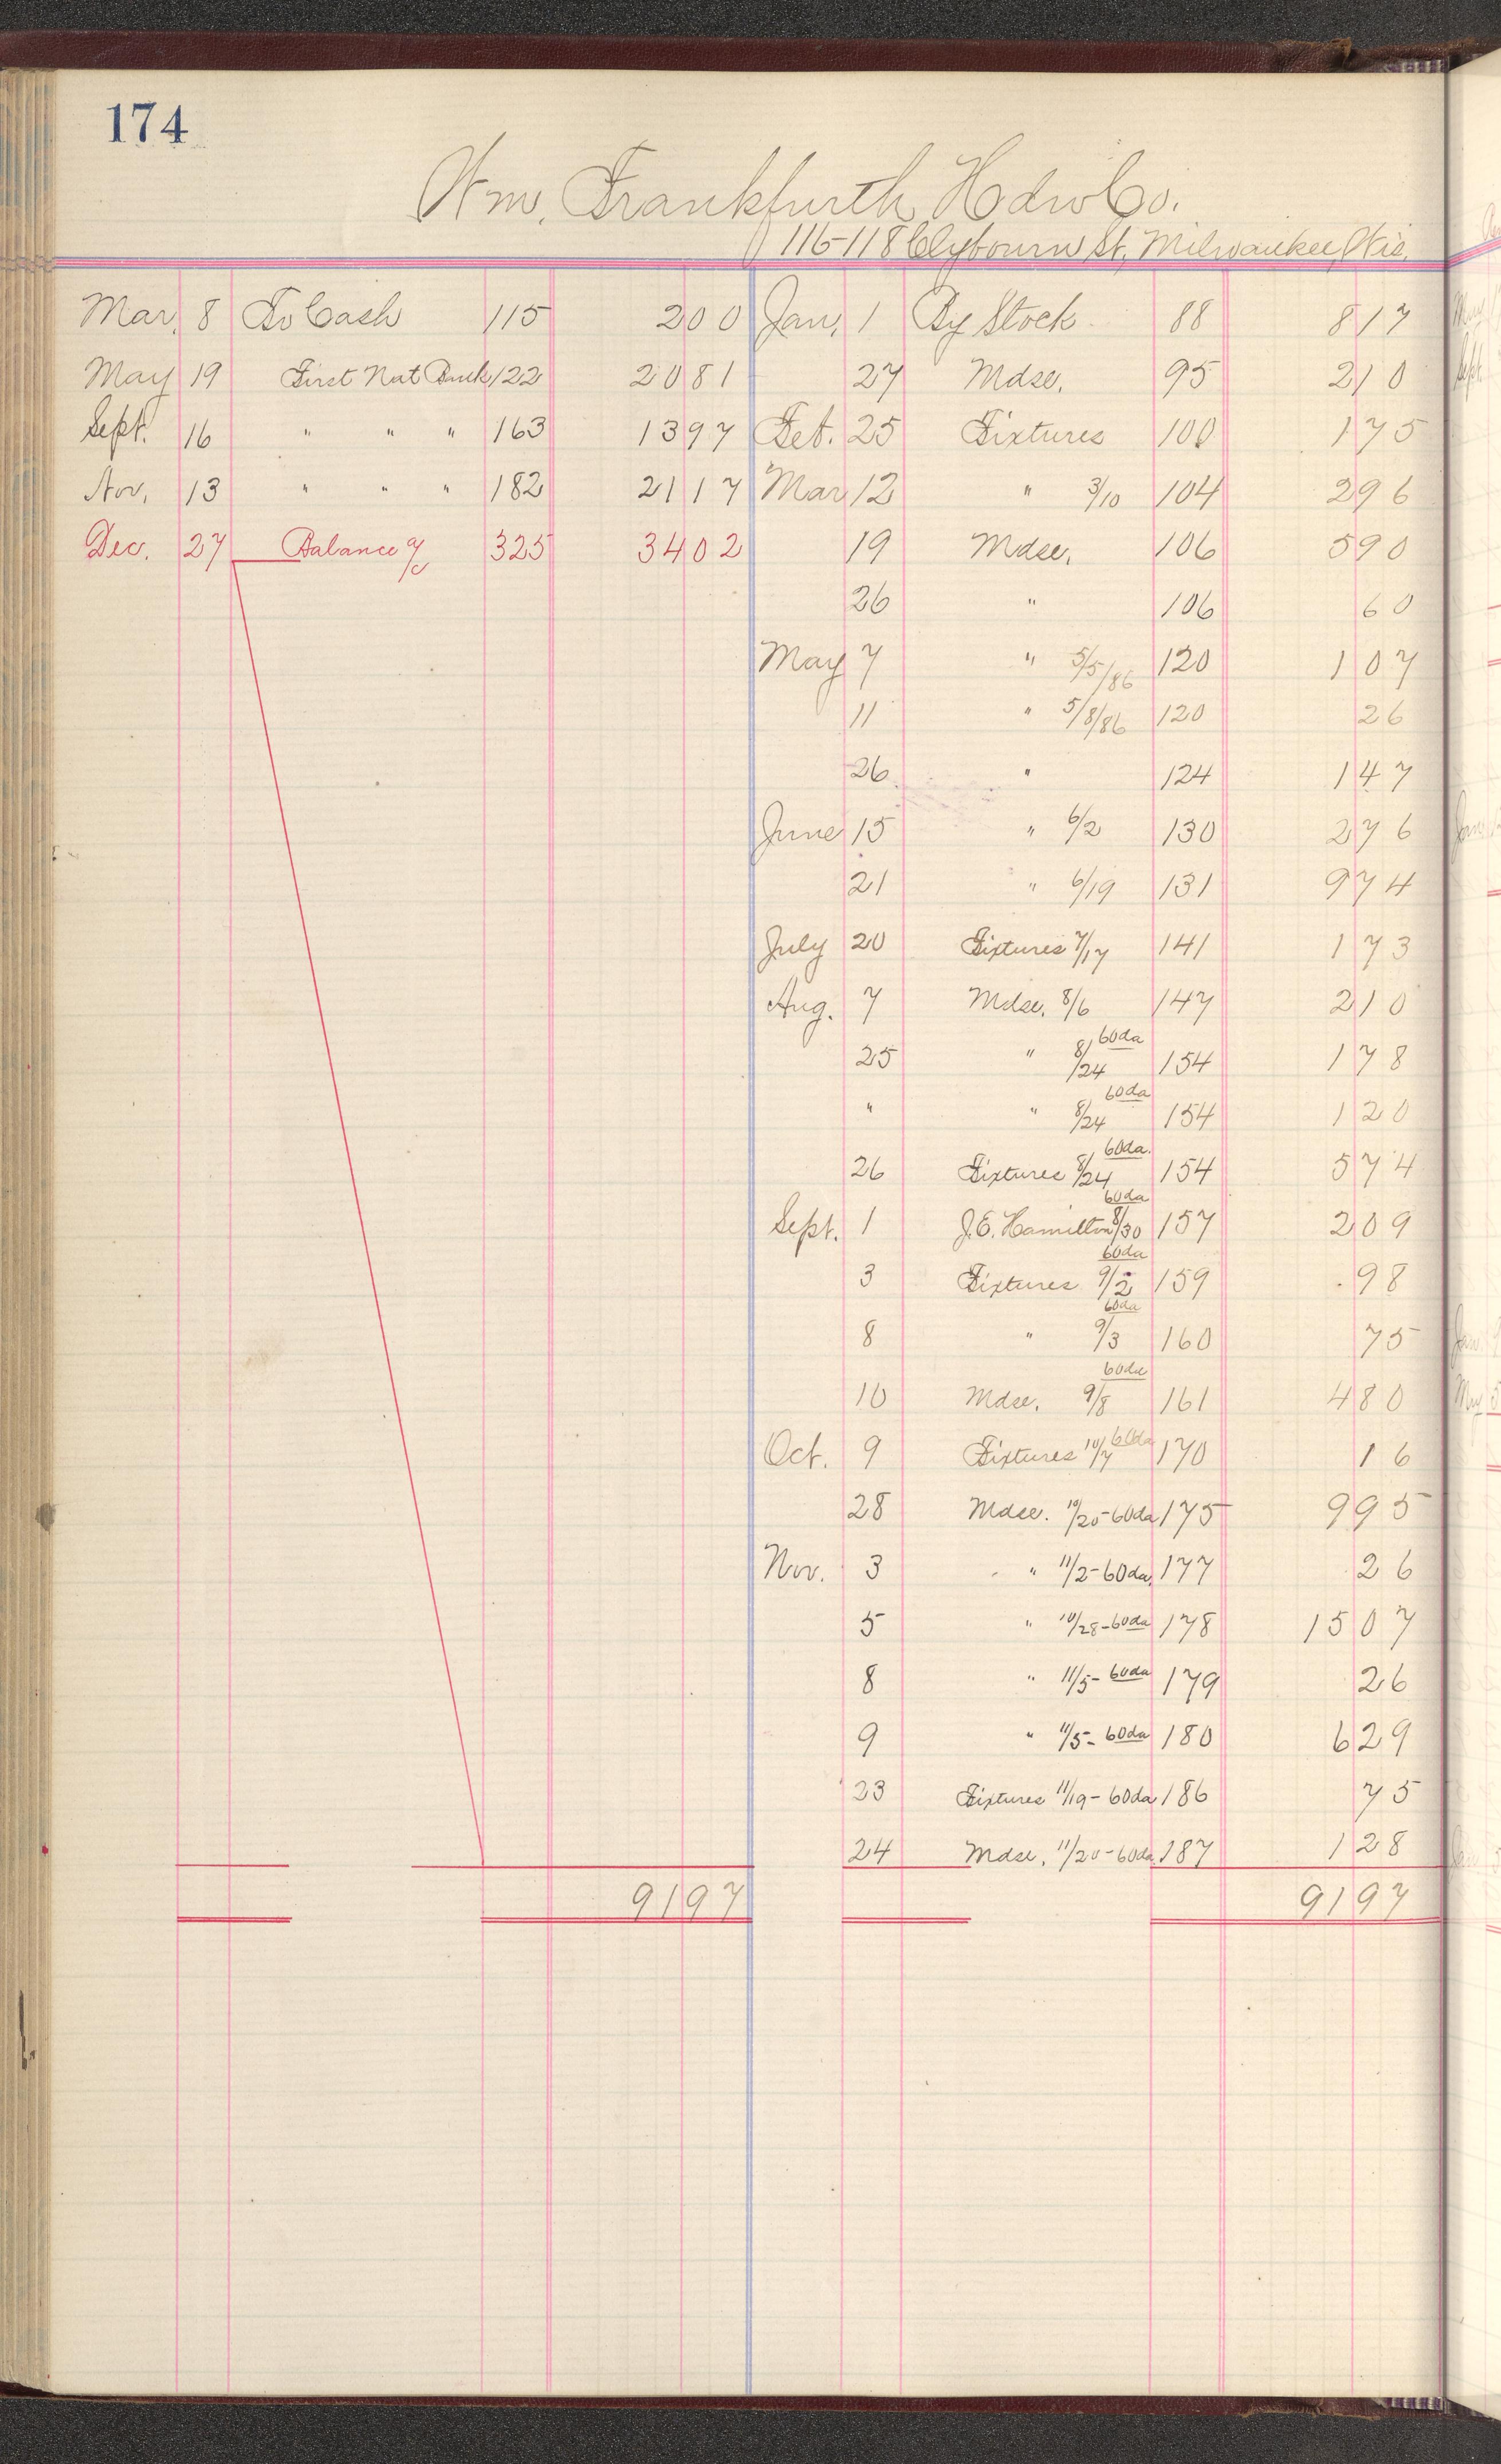 174
Wm. Frankfurth Hdw Co.
116-118 Clybourn St, Milwaukee, Wis.
Mar. 8 To Cash 115 200
May 19 First Nat Bank 122 2081
Sept. 16 " " " 163 1397
Nov. 13 " " " 182 2117
Dec. 27 Balance a/c 325 3402
9197
Jan. 1 By Stock 88 817
27 Mdse. 95 210
Feb. 25 Fixtures 100 175
Mar 12 " 3/10 104 296
19 Mdse. 106 590
26 " 106 60
May 7 " 5/5/86 120 107
11 " 5/8/86 120 26
26 " 124 147
June 15 " 6/2 130 276
21 " 6/19 131 974
July 20 Fixtures 7/17 141 173
Aug. 7 Mdse. 8/6 147 210
25 " 8/24 60da 154 178
" " 8/24 60da 154 120
26 Fixtures 8/24 60da. 154 574
Sept. 1 J.E. Hamilton 8/30 60da 157 209
3 Fixtures 9/2 60da 159 98
8 " 9/3 60da 160 75
10 Mdse. 9/8 60da 161 480
Oct. 9 Fixtures 10/7 60da 170 16
28 Mdse. 10/25-60da 175 995
Nov. 3 " 11/2-60da. 177 26
5 " 10/28-60da 178 1507
8 " 11/5-60da 179 26
9 " 11/5-60da 180 629
23 Fixtures 11/19-60da 186 75
24 Mdse. 11/20-60da 187 128
9197